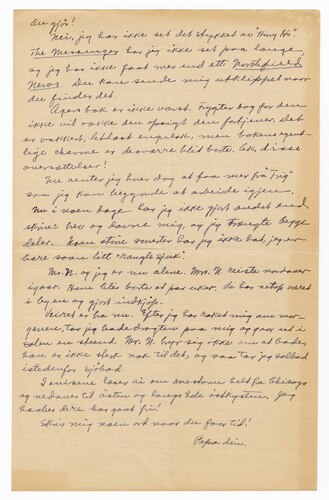 Du gjør!
Nei, jeg har ikke set det stykket av "Harry Hs"
The Messenger har jeg ikke set paa lange,
og jeg har ikke faat mer end ett Northfield
News. Du kan sende mig utklippet naar
du finder det.
Agers bok er ikke værst. Frygter dog for den
ikke vil vække den opsigt den fortjener. Det
er vakkert, letlæst engelsk, men bokens egent-
lige charme er desværre blit borte. Ak disse
oversættelser!
Nu venter jeg hver dag at faa mer fra "Trij"
saa jeg kan begynde at arbeide igjen.
Nu i noen dage har jeg ikke gjort andet end
skrive brev og dovne mig, og jeg trængte begge
deler. Noen større smerter har jeg ikke hat, jeg er
bare saan litt "rangle sjuk".
Mr. N. og jeg er nu alene. Mrs. N. reiste nordover
igaar. Hun blir borte et par uker. Vi har netop været
i byen og gjort indkjøp.
Veiret er bra nu. Efter jeg har raket mig om mor-
genene, tar jeg badedragten paa mig og gaar ut i
solen en stund. Mr. N. bryr sig ikke om at bade,
han er ikke sterk nok til det, og saa tar jeg solbad
istedenfor sjøbad.
I aviserne læser vi om snestorm helt fra Chicago
og nedover til østen og langs hele østkysten. Jeg
haaber dere har gaat fri!
Skriv mig noen ord naar du faar tid!
Papa din.